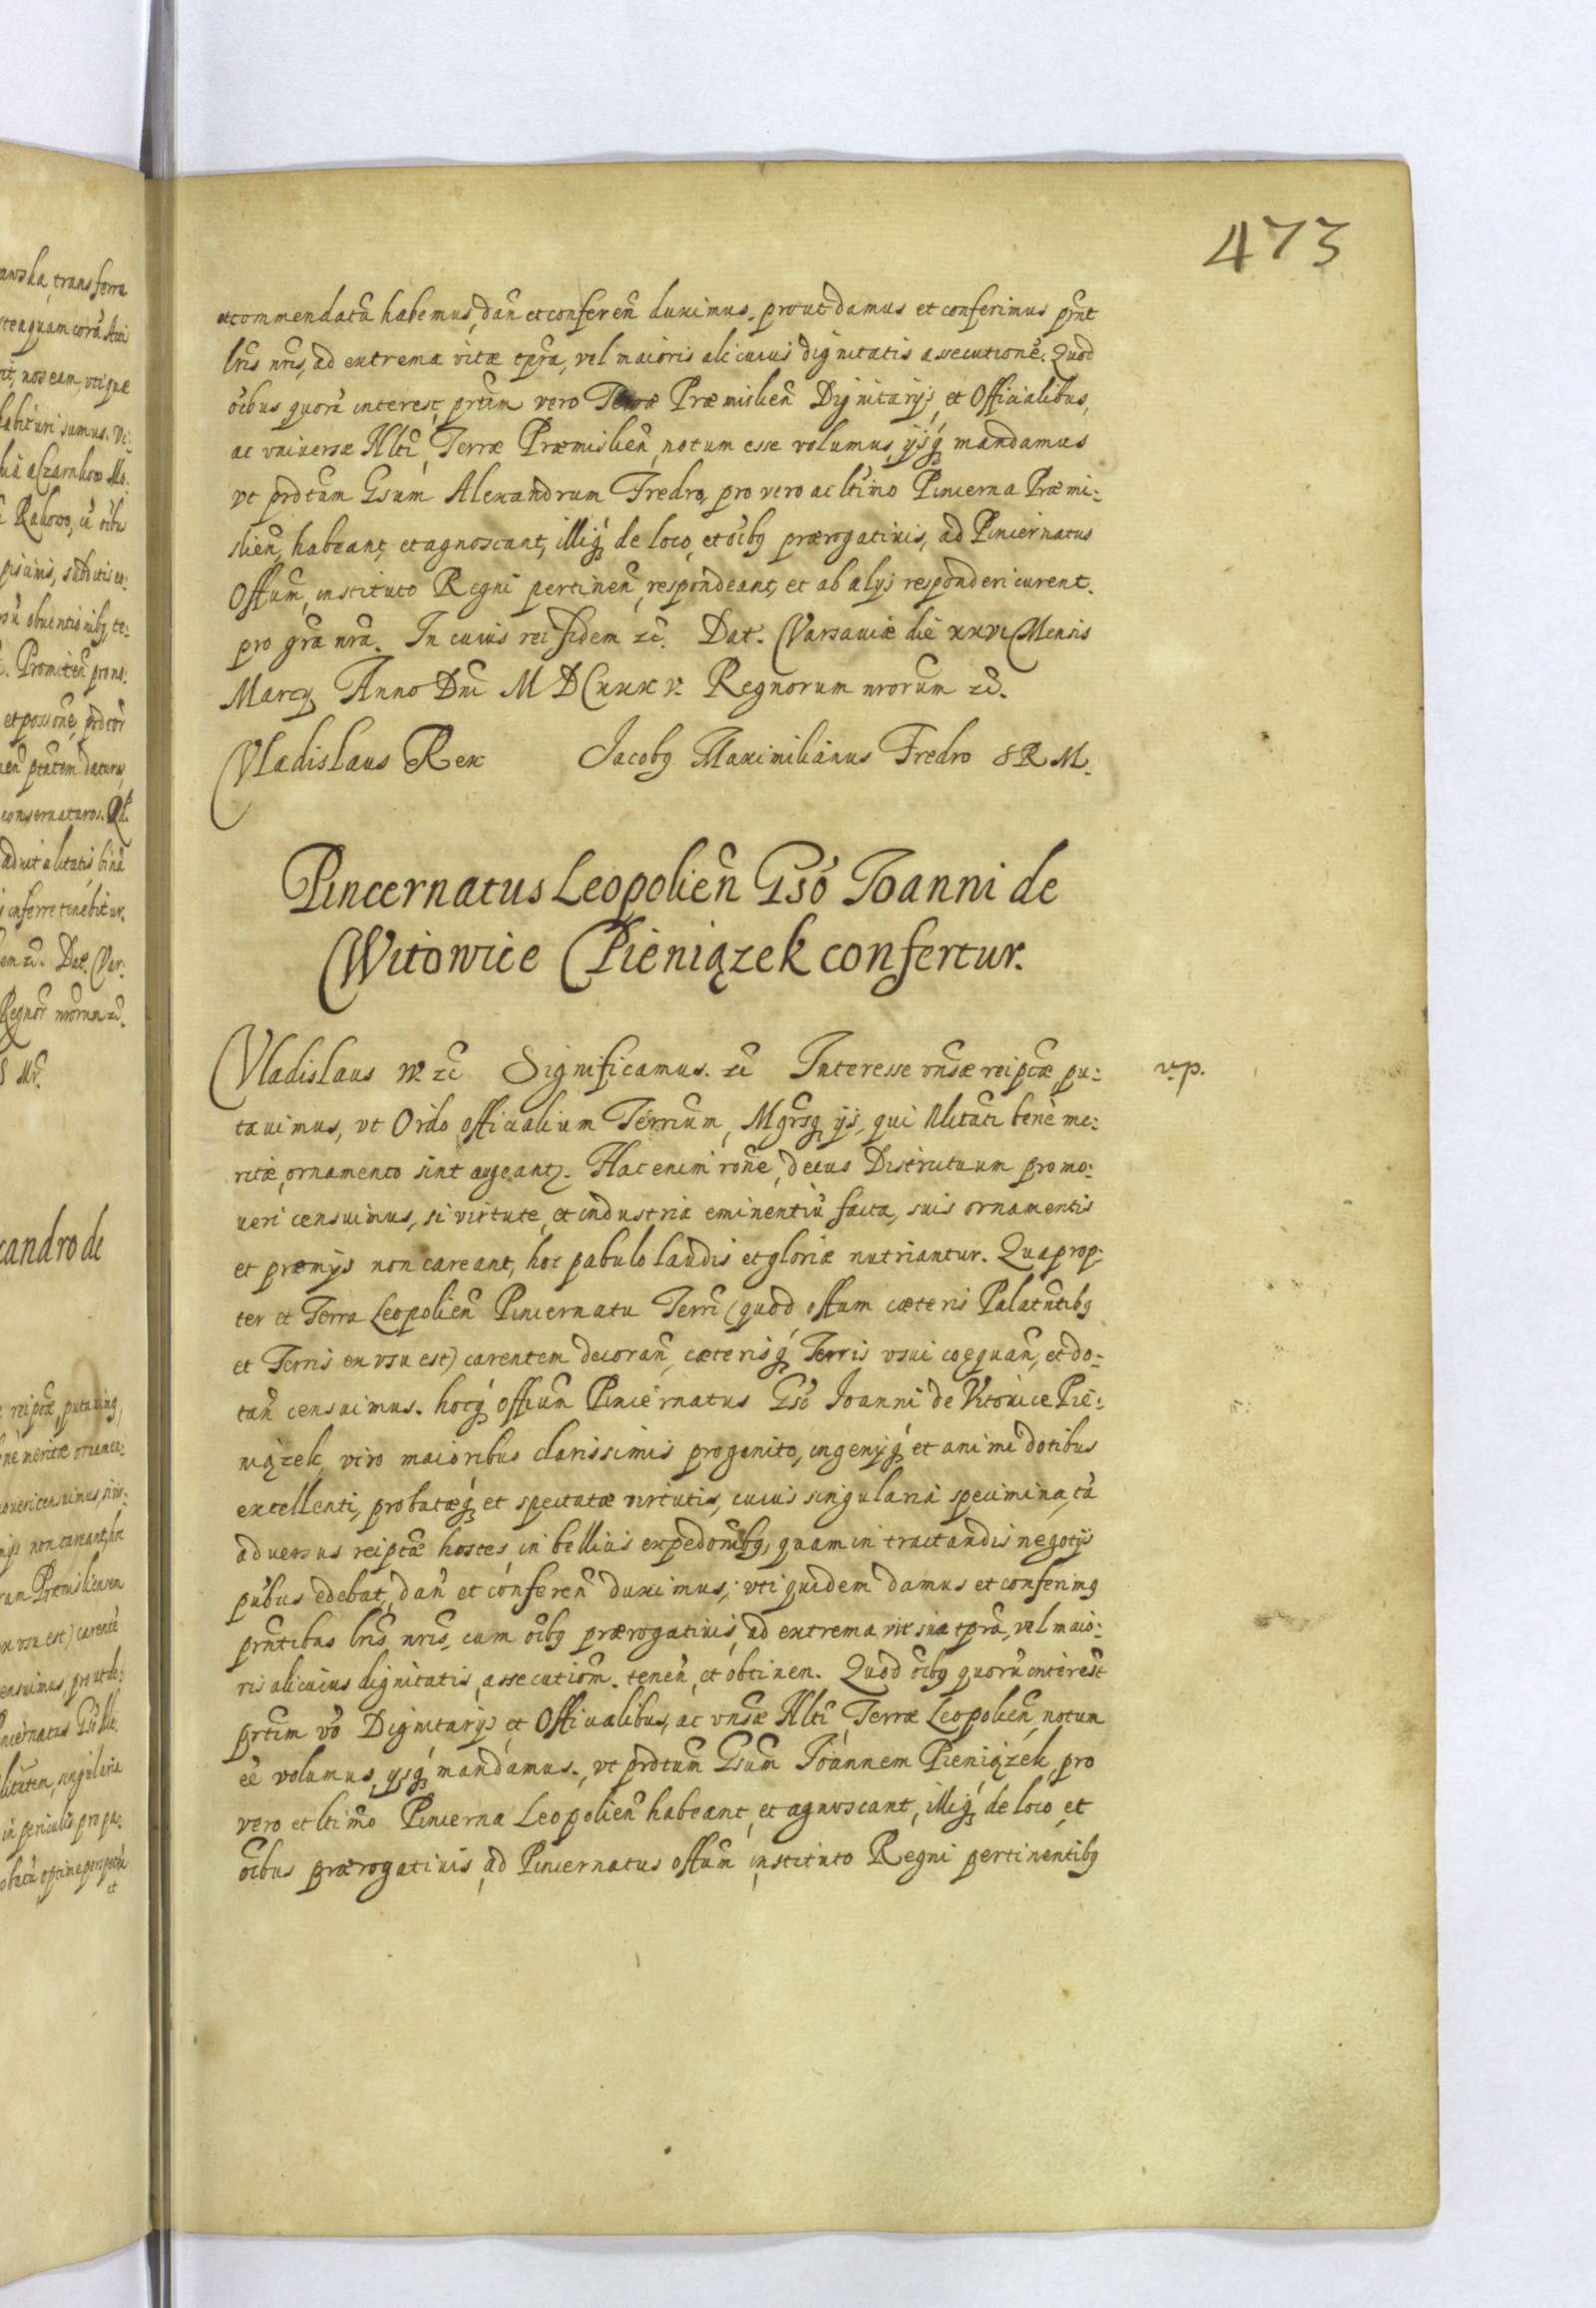 473
et commendatũ habemus, dañ et confereñ duximus. prout damus et conferimus prñt
lris nris, ad extrema vitæ tpra, vel maioris alicuius dignitatis assecutionẽ. Quod
oibus quorũ interest, prtim vero Terræ Præmislieñ Dignitarijs, et Officialibus,
ac vniversæ Nlti, Terræ Præmislieñ, notum esse volumus, ijsq́ mandamus
vt prdtum Gsum Alexandrum Fredro, pro vero ac ltimo Pincerna Præmi-
slieñ, habeant, et agnoscant, illiq́ de loco, et oibq prærogatiuis, ad Pincernatus
Offum, instituto Regni pertineñ, respondeant, et ab alijs responderi curent.
pro gra nra. In cuius rei fidem zc̃. Dat. Varsauiæ die xxvi Mensis
Marcij Anno Dni M DCxxxv. Regnorum nrorum zc̃.
Vladislaus Rex Jacobq Maximilianus Fredro S R M.
Pincernatus Leopolieñ Gsõ Joanni de
Witowice Pieniązek confertur.
Vladislaus IV. zc̃ Significamus. zc̃ Interesse vnsæ reiptæ pu- v.p.
tauimus, vt Ordo officialium Terrium, Mgrsq ijs, qui Nlitati bene me-
ritæ, ornamento sint augeantz. Hac enim rone, decus Districtuum promo-
ueri censuimus, si virtute, et industria eminentiũ facta, suis ornamentis
et præmijs non careant, hoc pabulo laudis et gloriæ nutriantur. Quaprop-
ter et Terra Leopolieñ Pincernatu Terri (quod offum cæteris Palatntibq
et Terris ex vsu est) carentem decorañ, cæterisq́ Terris vsui coequañ, et do-
tañ censuimus. hocq́ offium Pincernatus Gsõ Joanni de Vitowice Pie-
niązek, viro maioribus clarissimis progenito, ingenijq́ et animi dotibus
excellenti, probatæq́ et spectatæ virtutis, cuius singularia specimina, tã
aduersus reiptæ hostes, in bellicis expedonibq, quam in tractandis negotijs
pubus edebat, dañ et confereñ duximus, vti quidem damus et conferimq
prntibus lris nris, cum oibq prærogatiuis, ad extrema vit suæ tpra, vel maio-
ris alicuius dignitatis, assecutiom. teneñ, et obtinen. Quod oibq quorũ interest
prtim vo Dignitarijs et Officialibus, ac vnsæ Nlti Terræ Leopolieñ, notum
eẽ volumus, ijsq́ mandamus., vt prdtum Gsum Joannem Pieniązek, pro
vero et ltimo Pincerna Leopolieñ habeant, et agnoscant, illiq́ de loco, et
oibus prærogatiuis, ad Pincernatus offum instituto Regni pertinentibq